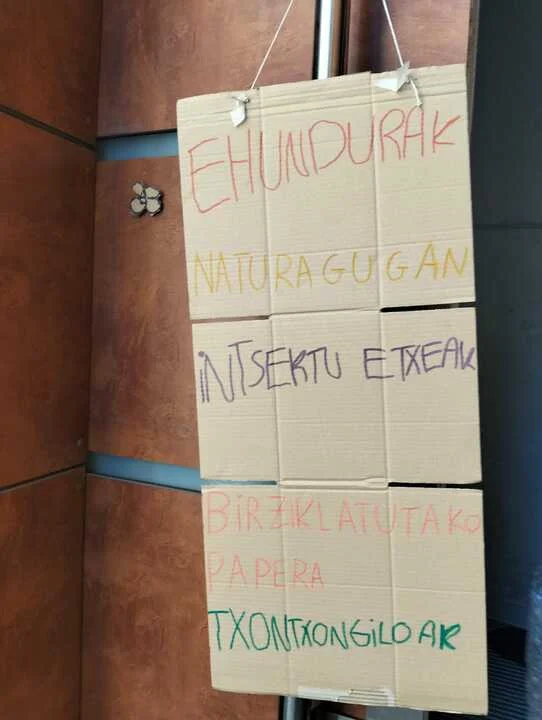 EHUNDURAK
NATURA GUGAN
iNTSEKTU ETXEAK
BiRZIKLATUTAKO
PAPERA
TXONTXONGiLOAK